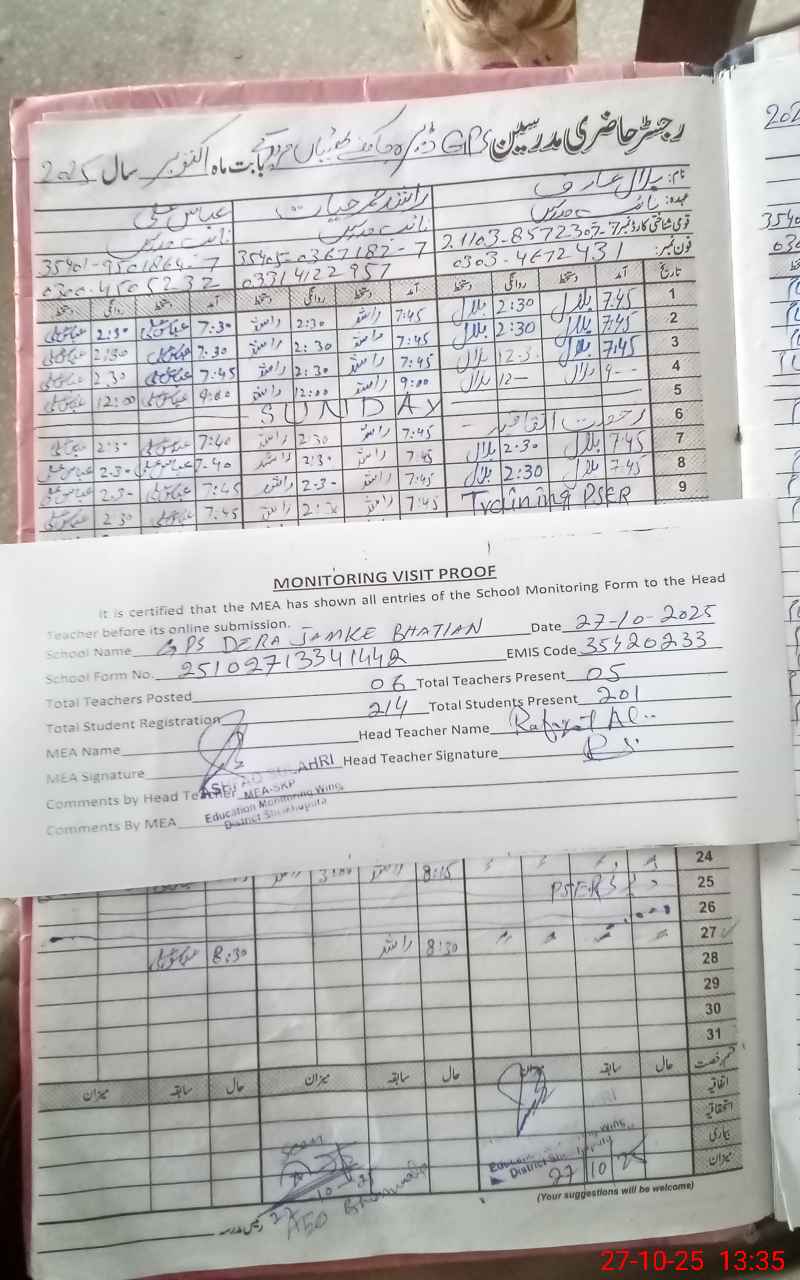 رجسٹر حاضری مدرسین GPS ڈیرہ جامکے بھٹیاں بابت ماہ اکتوبر سال 2025
نام: بلال عارف راشد عمر حیات عباس علی
عہدہ: نائب مدرس نائب مدرس
قومی شناختی کارڈ نمبر: 21103-8572307-7 35405-0367187-7 35401-9501864-7
فون نمبر: 0303-4672431 03314122957 0300-4505232
تاریخ آمد دستخط روانگی دستخط آمد دستخط روانگی دستخط آمد دستخط روانگی دستخط
1 7:45 بلال 2:30 بلال 7:45 راشد 2:30 راشد 7:30 عباس علی 2:30 عباس علی
2 7:45 بلال 2:30 بلال 7:45 راشد 2:30 راشد 7:30 عباس علی 2:30 عباس علی
3 7:45 بلال 12:30 بلال 7:45 راشد 2:30 راشد 7:45 عباس علی 2:30 عباس علی
4 9-- بلال 12-- بلال 9:00 راشد 12:00 راشد 9:00 عباس علی 12:00 عباس علی
5 SUNDAY
6 رخصت اتفاقیہ 7:45 راشد 2:30 راشد 7:40 عباس علی 2:30 عباس علی
7 7:45 بلال 2:30 بلال 7:45 راشد 2:30 راشد 7:40 عباس علی 2:30 عباس علی
8 7:45 بلال 2:30 بلال 7:45 راشد 2:30 راشد 7:45 عباس علی 2:30 عباس علی
9 Training PSER 7:45 راشد 2:30 راشد 7:45 عباس علی 2:30 عباس علی
MONITORING VISIT PROOF
It is certified that the MEA has shown all entries of the School Monitoring Form to the Head
Teacher before its online submission.
School Name GPS DERA JAMKE BHATIAN Date 27-10-2025
School Form No. 25102713341442 EMIS Code 35420233
Total Teachers Posted 06 Total Teachers Present 05
Total Student Registration 214 Total Students Present 201
MEA Name Head Teacher Name Rafaqat Ali
MEA Signature Head Teacher Signature
Comments by Head Teacher
MEA-SKP
Comments By MEA
Education Monitoring Wing,
District Sheikhupura
24
25 PSERS 8:15 راشد 3:00 راشد
26
27 8:30 راشد 8:30 عباس علی
28
29
30
31
قسم رخصت حال سابقہ میزان حال سابقہ میزان حال سابقہ میزان
اتفاقیہ
استحقاقیہ
بیماری
میزان
Seen
27-10-25
AEO
District
27/10/25
رئیس مدرسہ
(Your suggestions will be welcome)
27-10-25 13:35